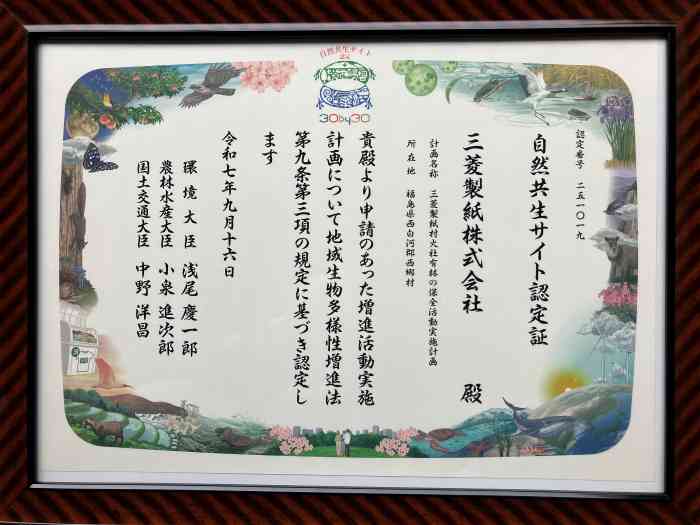 自然共生サイト
30by30
認定番号 二五一〇一九
自然共生サイト認定証
三菱製紙株式会社 殿
計画名称 三菱製紙村火社有林の保全活動実施計画
所在地 福島県西白河郡西郷村
貴殿より申請のあった増進活動実施
計画について地域生物多様性増進法
第九条第三項の規定に基づき認定し
ます
令和七年九月十六日
環境大臣 浅尾慶一郎
農林水産大臣 小泉進次郎
国土交通大臣 中野洋昌